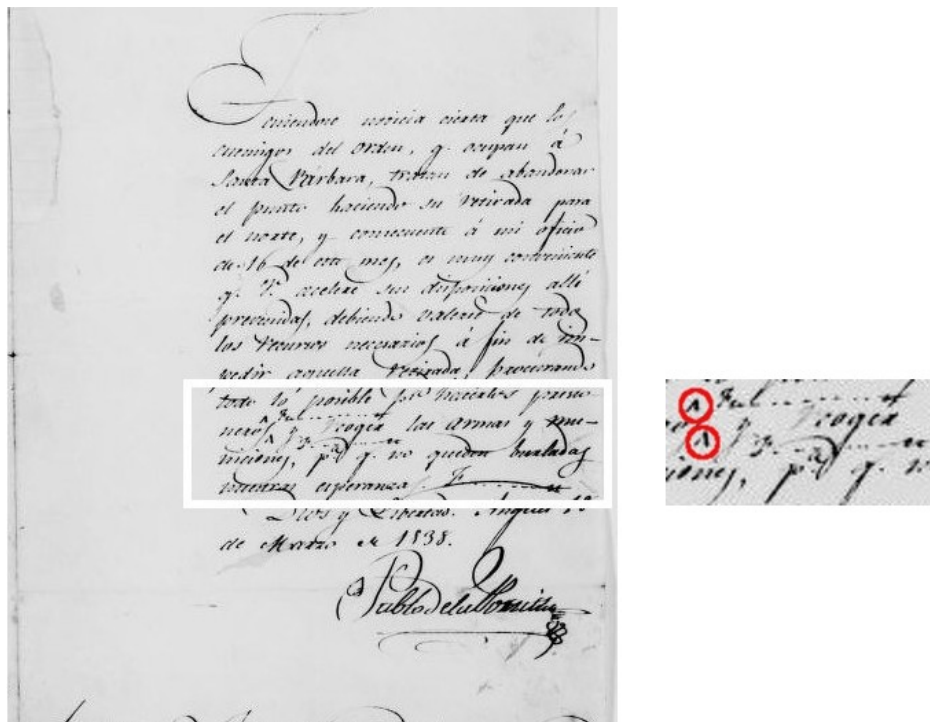 Teniendose noticia cierta que los
enemigos del orden, q. ocupan á
Santa Bárbara, tratan de abandonar
el punto haciendo su retirada para
el norte, y consecuente á mi oficio
de 16 de este mes, es muy conveniente
q. V. acelere sus disposiciones allí
prevenidas, debiendo valerse de todos
los recursos necesarios á fin de im-
pedir aquella retirada, procurando
todo lo posible pr. hacerlos prisio
neros y recoger las armas y mu-
niciones, pa. q. no queden burladas
nuestras esperanzas.
Dios y Libertad. Angeles
de Marzo de 1838.
Pablo de la